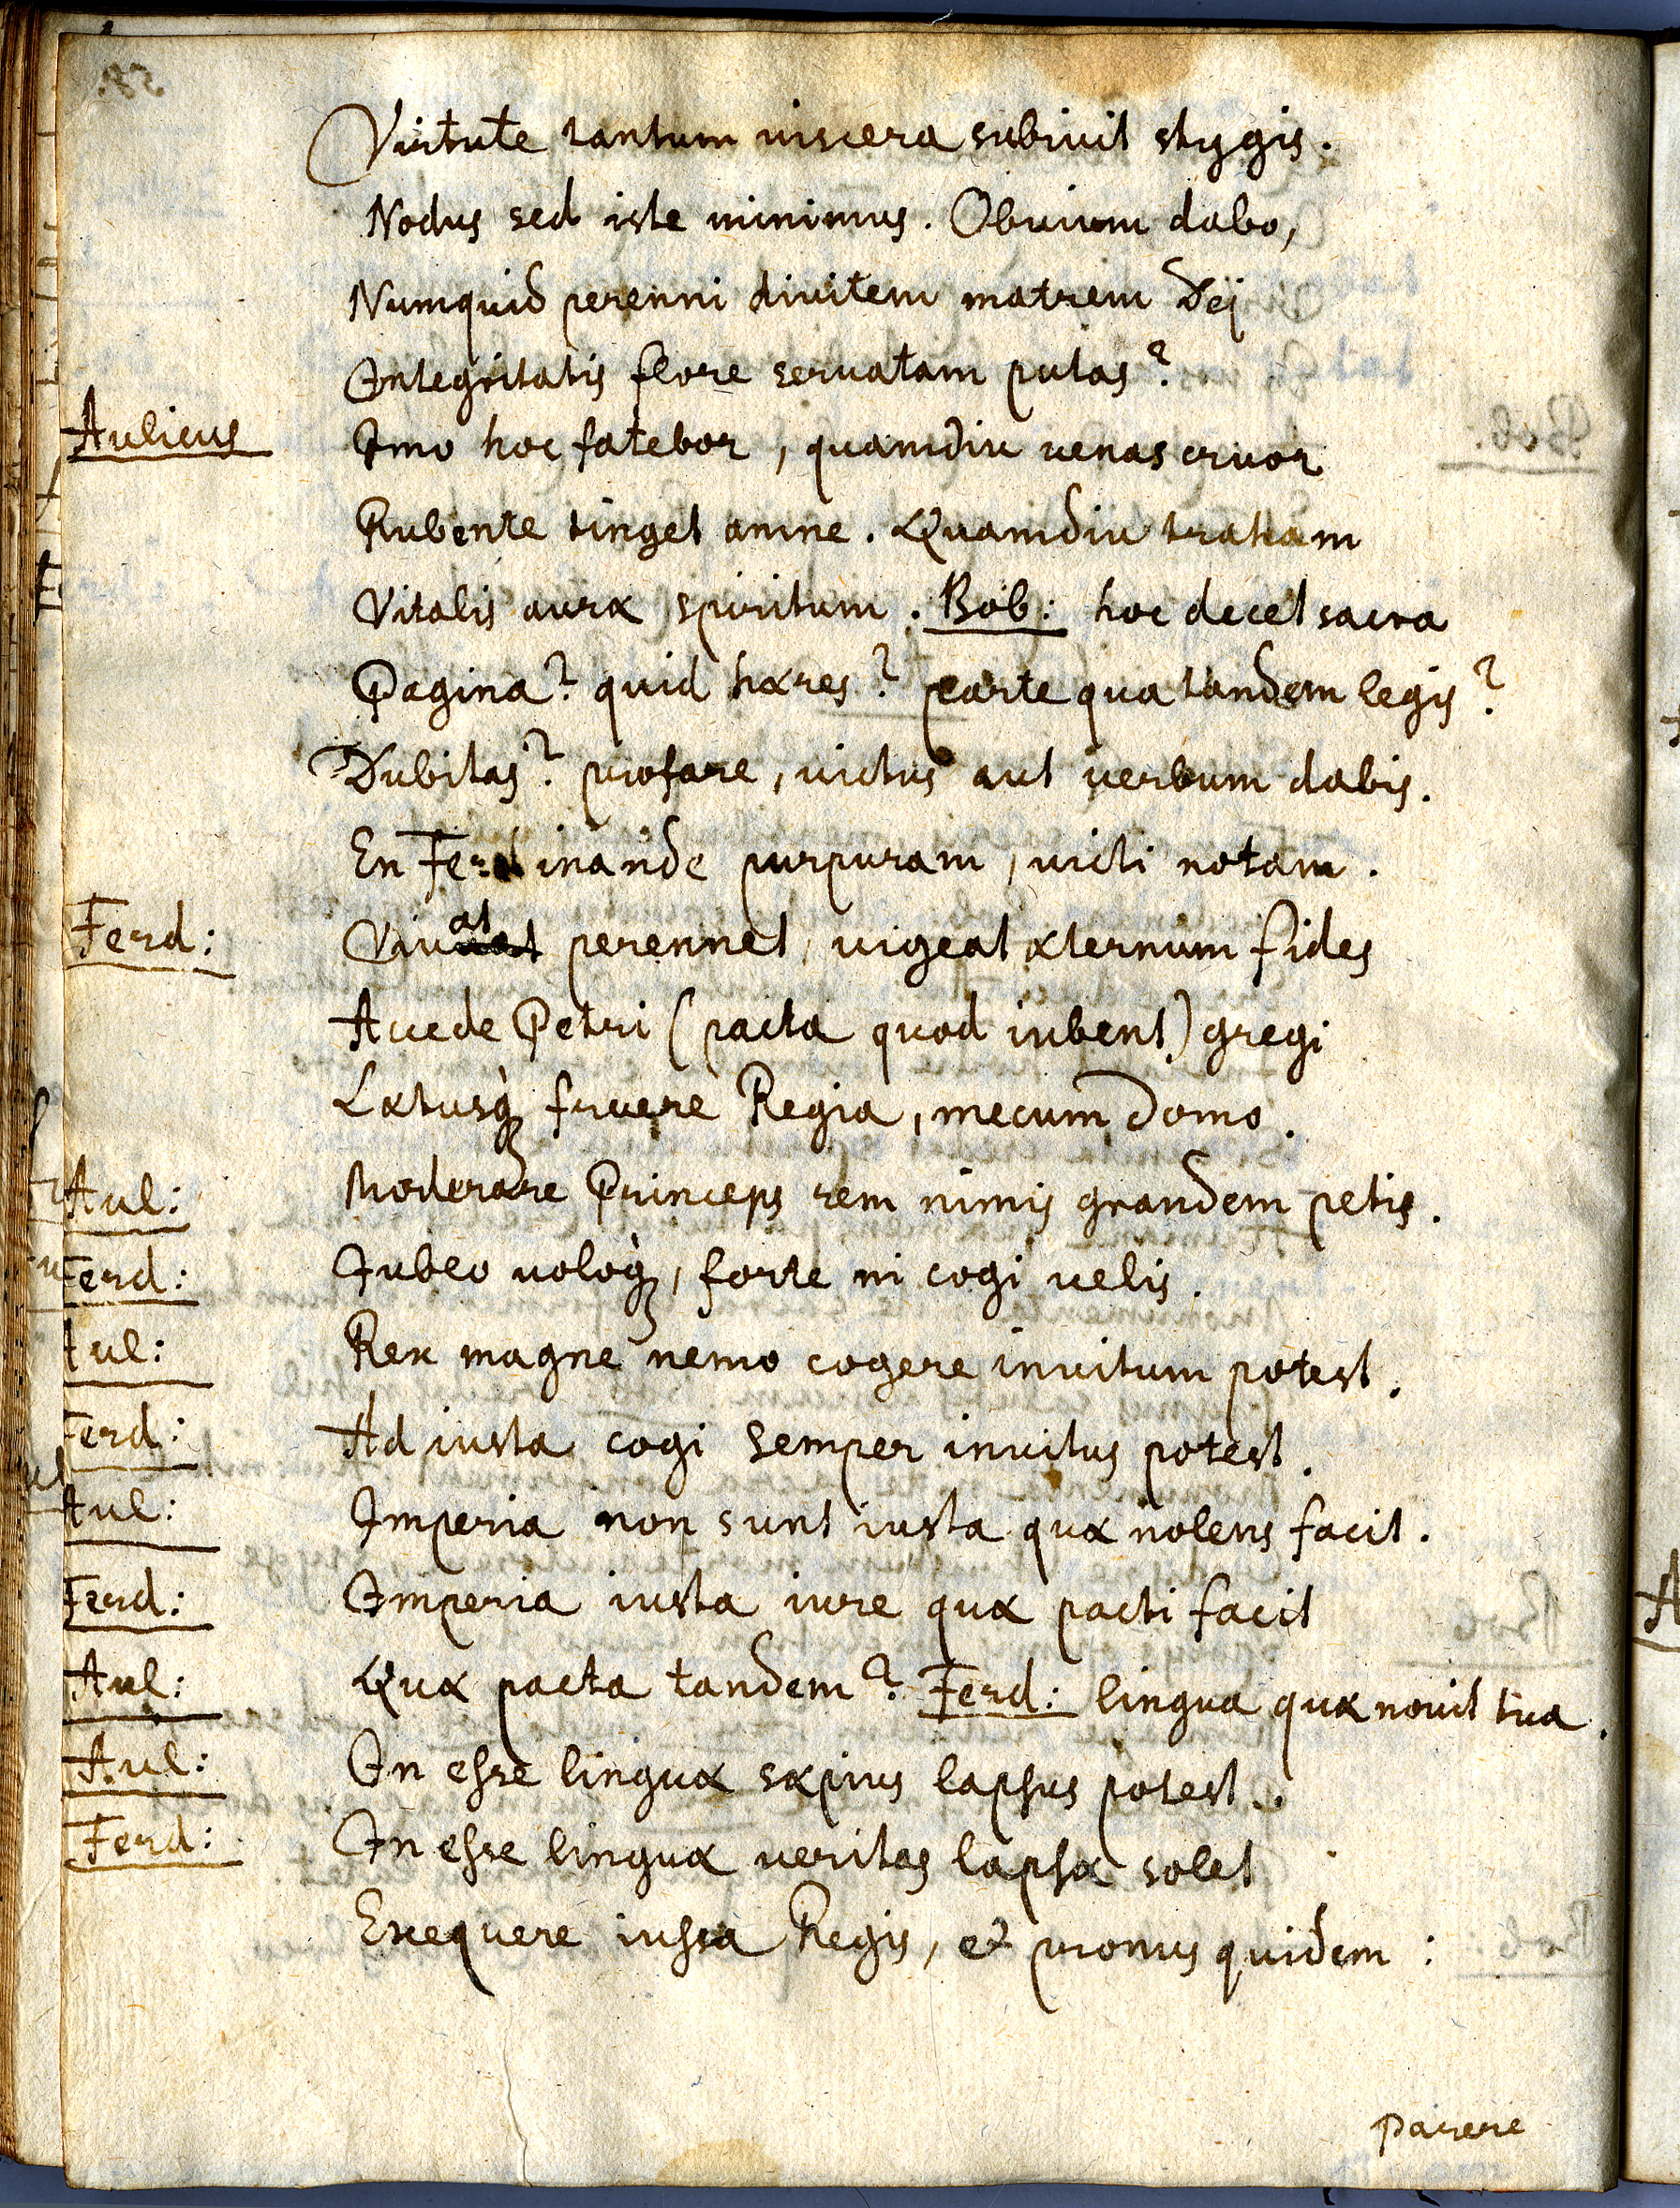 Virtute tantum viscera subivit stygis.
Nodus sed iste minimus. Obvium dabo,
Numquid perenni divitem matrem Dej
Integritatis flore servatam putas?
Aulicus Imo hoc fatebor, quamdiu venas cruor
Rubente tinget amne. Quamdiu traham
Vitalis auræ spiritum. Bob: hoc docet sacra
Pagina? quid hæres? parte qua tandem legis?
Dubitas? profare, victus aut verbum dabis.
En Ferdinande purpuram, victi notam.
Ferd: Vivat perennet, vigeat æternum fides
Accede Petri (pacta quod iubent) gregi
Lætusq₃ fruere Regia, mecum domo.
Aul: Moderare Princeps rem nimis grandem petis.
Ferd: Iubeo voloq₃, forte ni cogi velis.
Aul: Rex magne nemo cogere invitum potest.
Ferd: Ad iusta cogi semper invitus potest.
Aul: Imperia non sunt iusta quæ nolens facit.
Ferd: Imperia iusta iure quæ pacti facit
Aul: Quæ pacta tandem? Ferd: lingua quæ novit tua.
Aul: In esse linguæ sæpius lapsus potest.
Ferd: In esse linguæ veritas lapsæ solet
Exequere iussa Regis, et promus quidem:
Parere